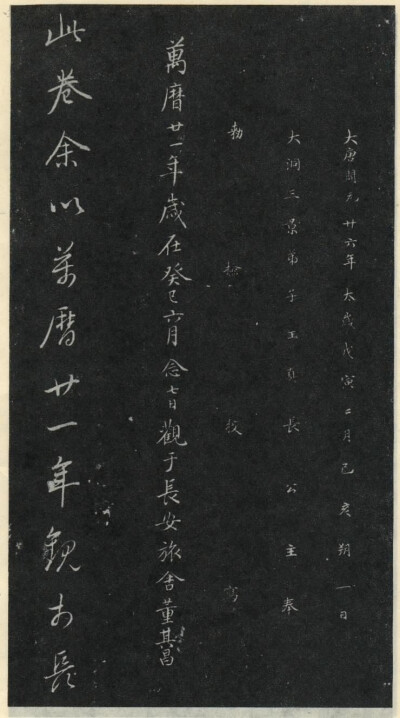 大唐開元廿六年太歲戊寅二月己亥朔一日
大洞三景弟子玉真長公主奉
勅檢校寫
萬曆廿一年歲在癸巳六月念七日觀于長安旅舍董其昌
此卷余以萬曆廿一年觀於長